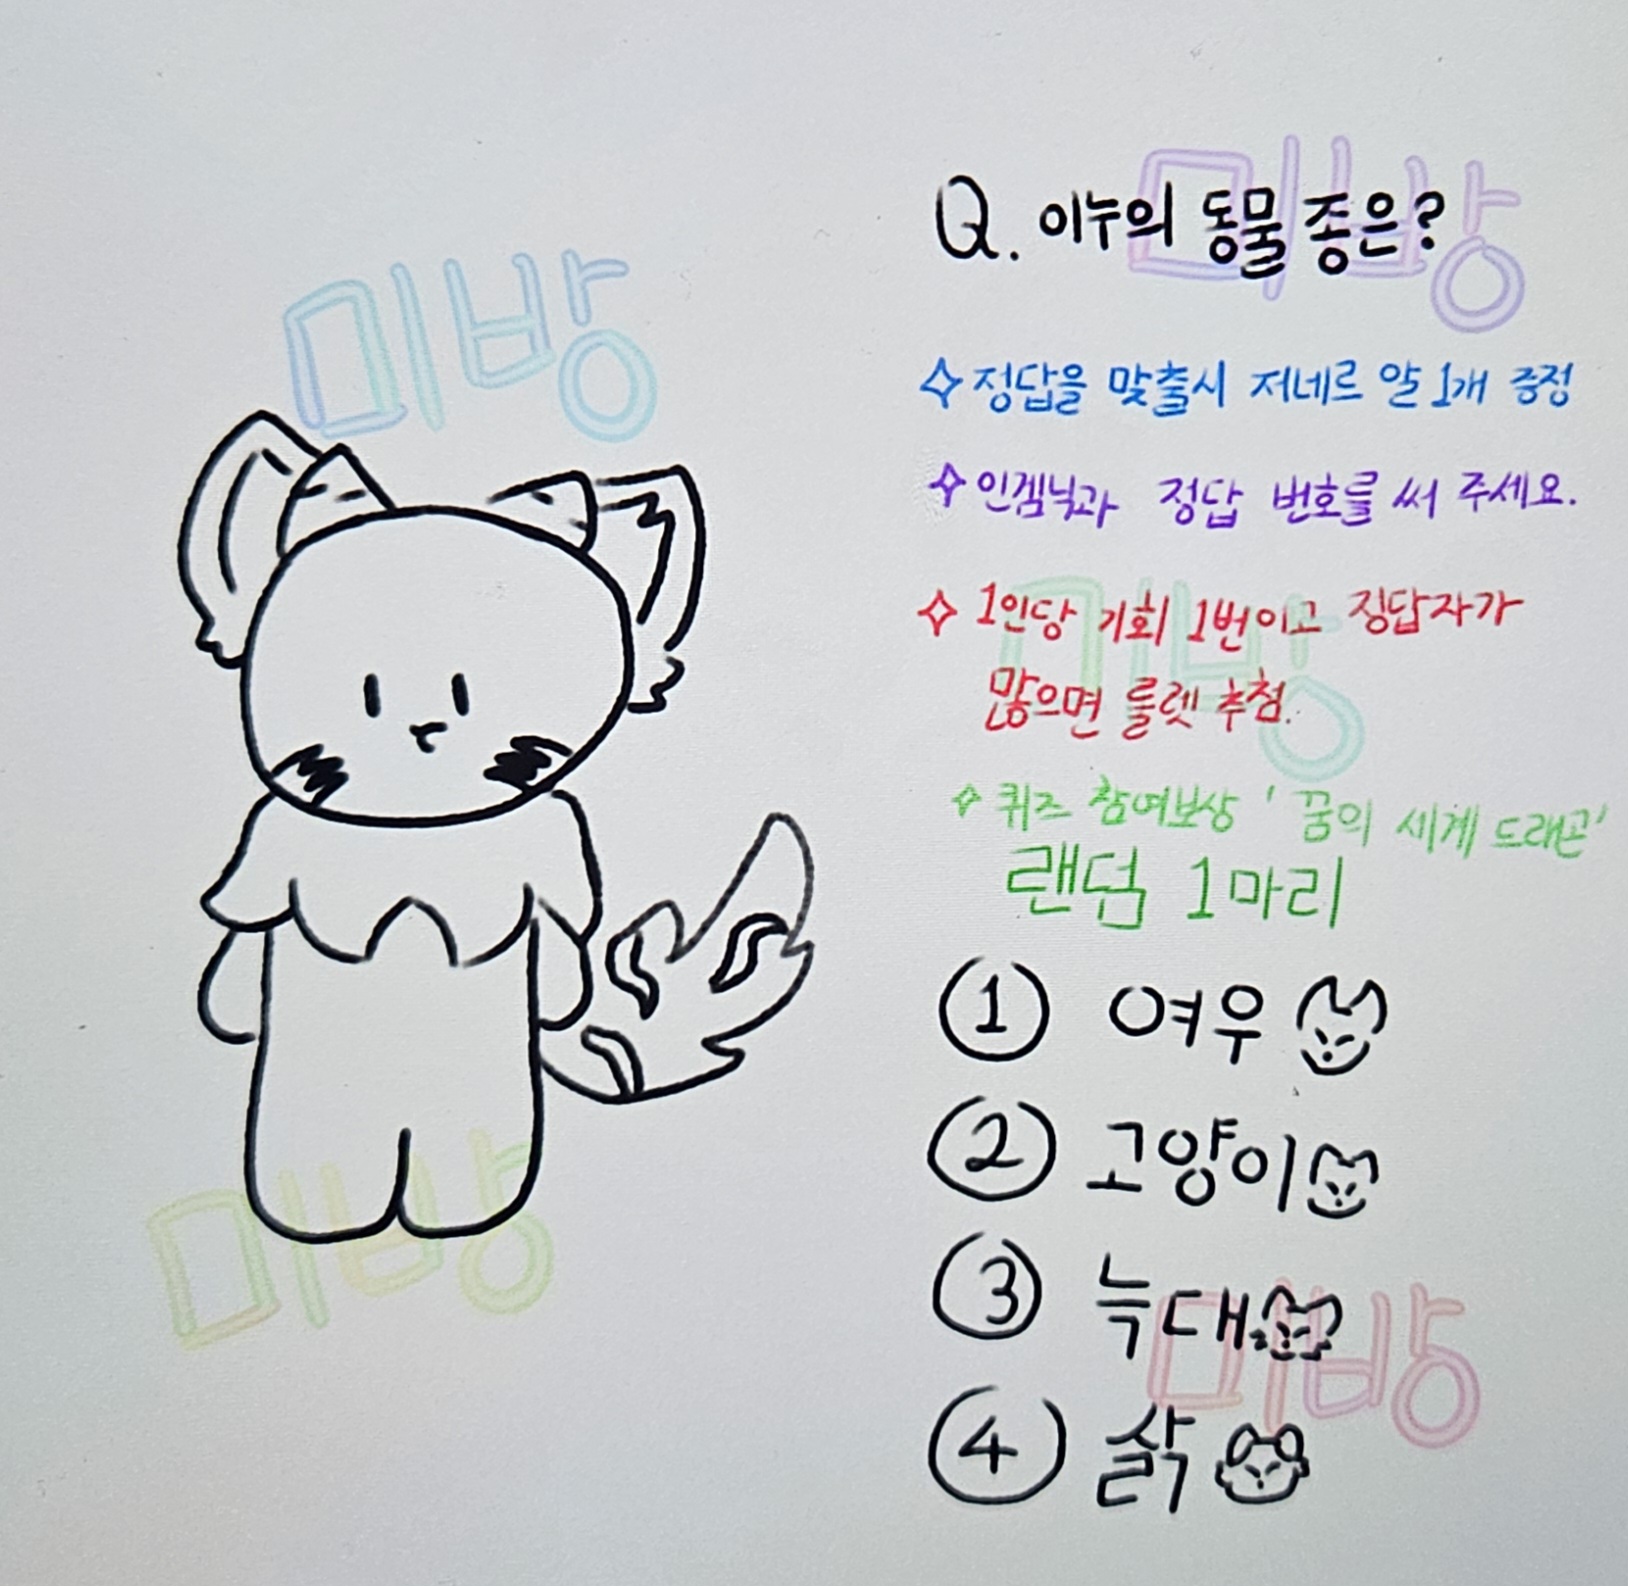 미방
미방
Q. 이누의 동물 종은?
✧ 정답을 맞출시 저네르 알 1개 증정
✧ 인겜닉과 정답 번호를 써 주세요.
미방
✧ 1인당 기회 1번이고 정답자가
많으면 룰렛 추첨.
✧ 퀴즈 참여보상 '꿈의 세계 드래곤'
랜덤 1마리
① 여우
② 고양이
미방
③ 늑대
미방
④ 삵